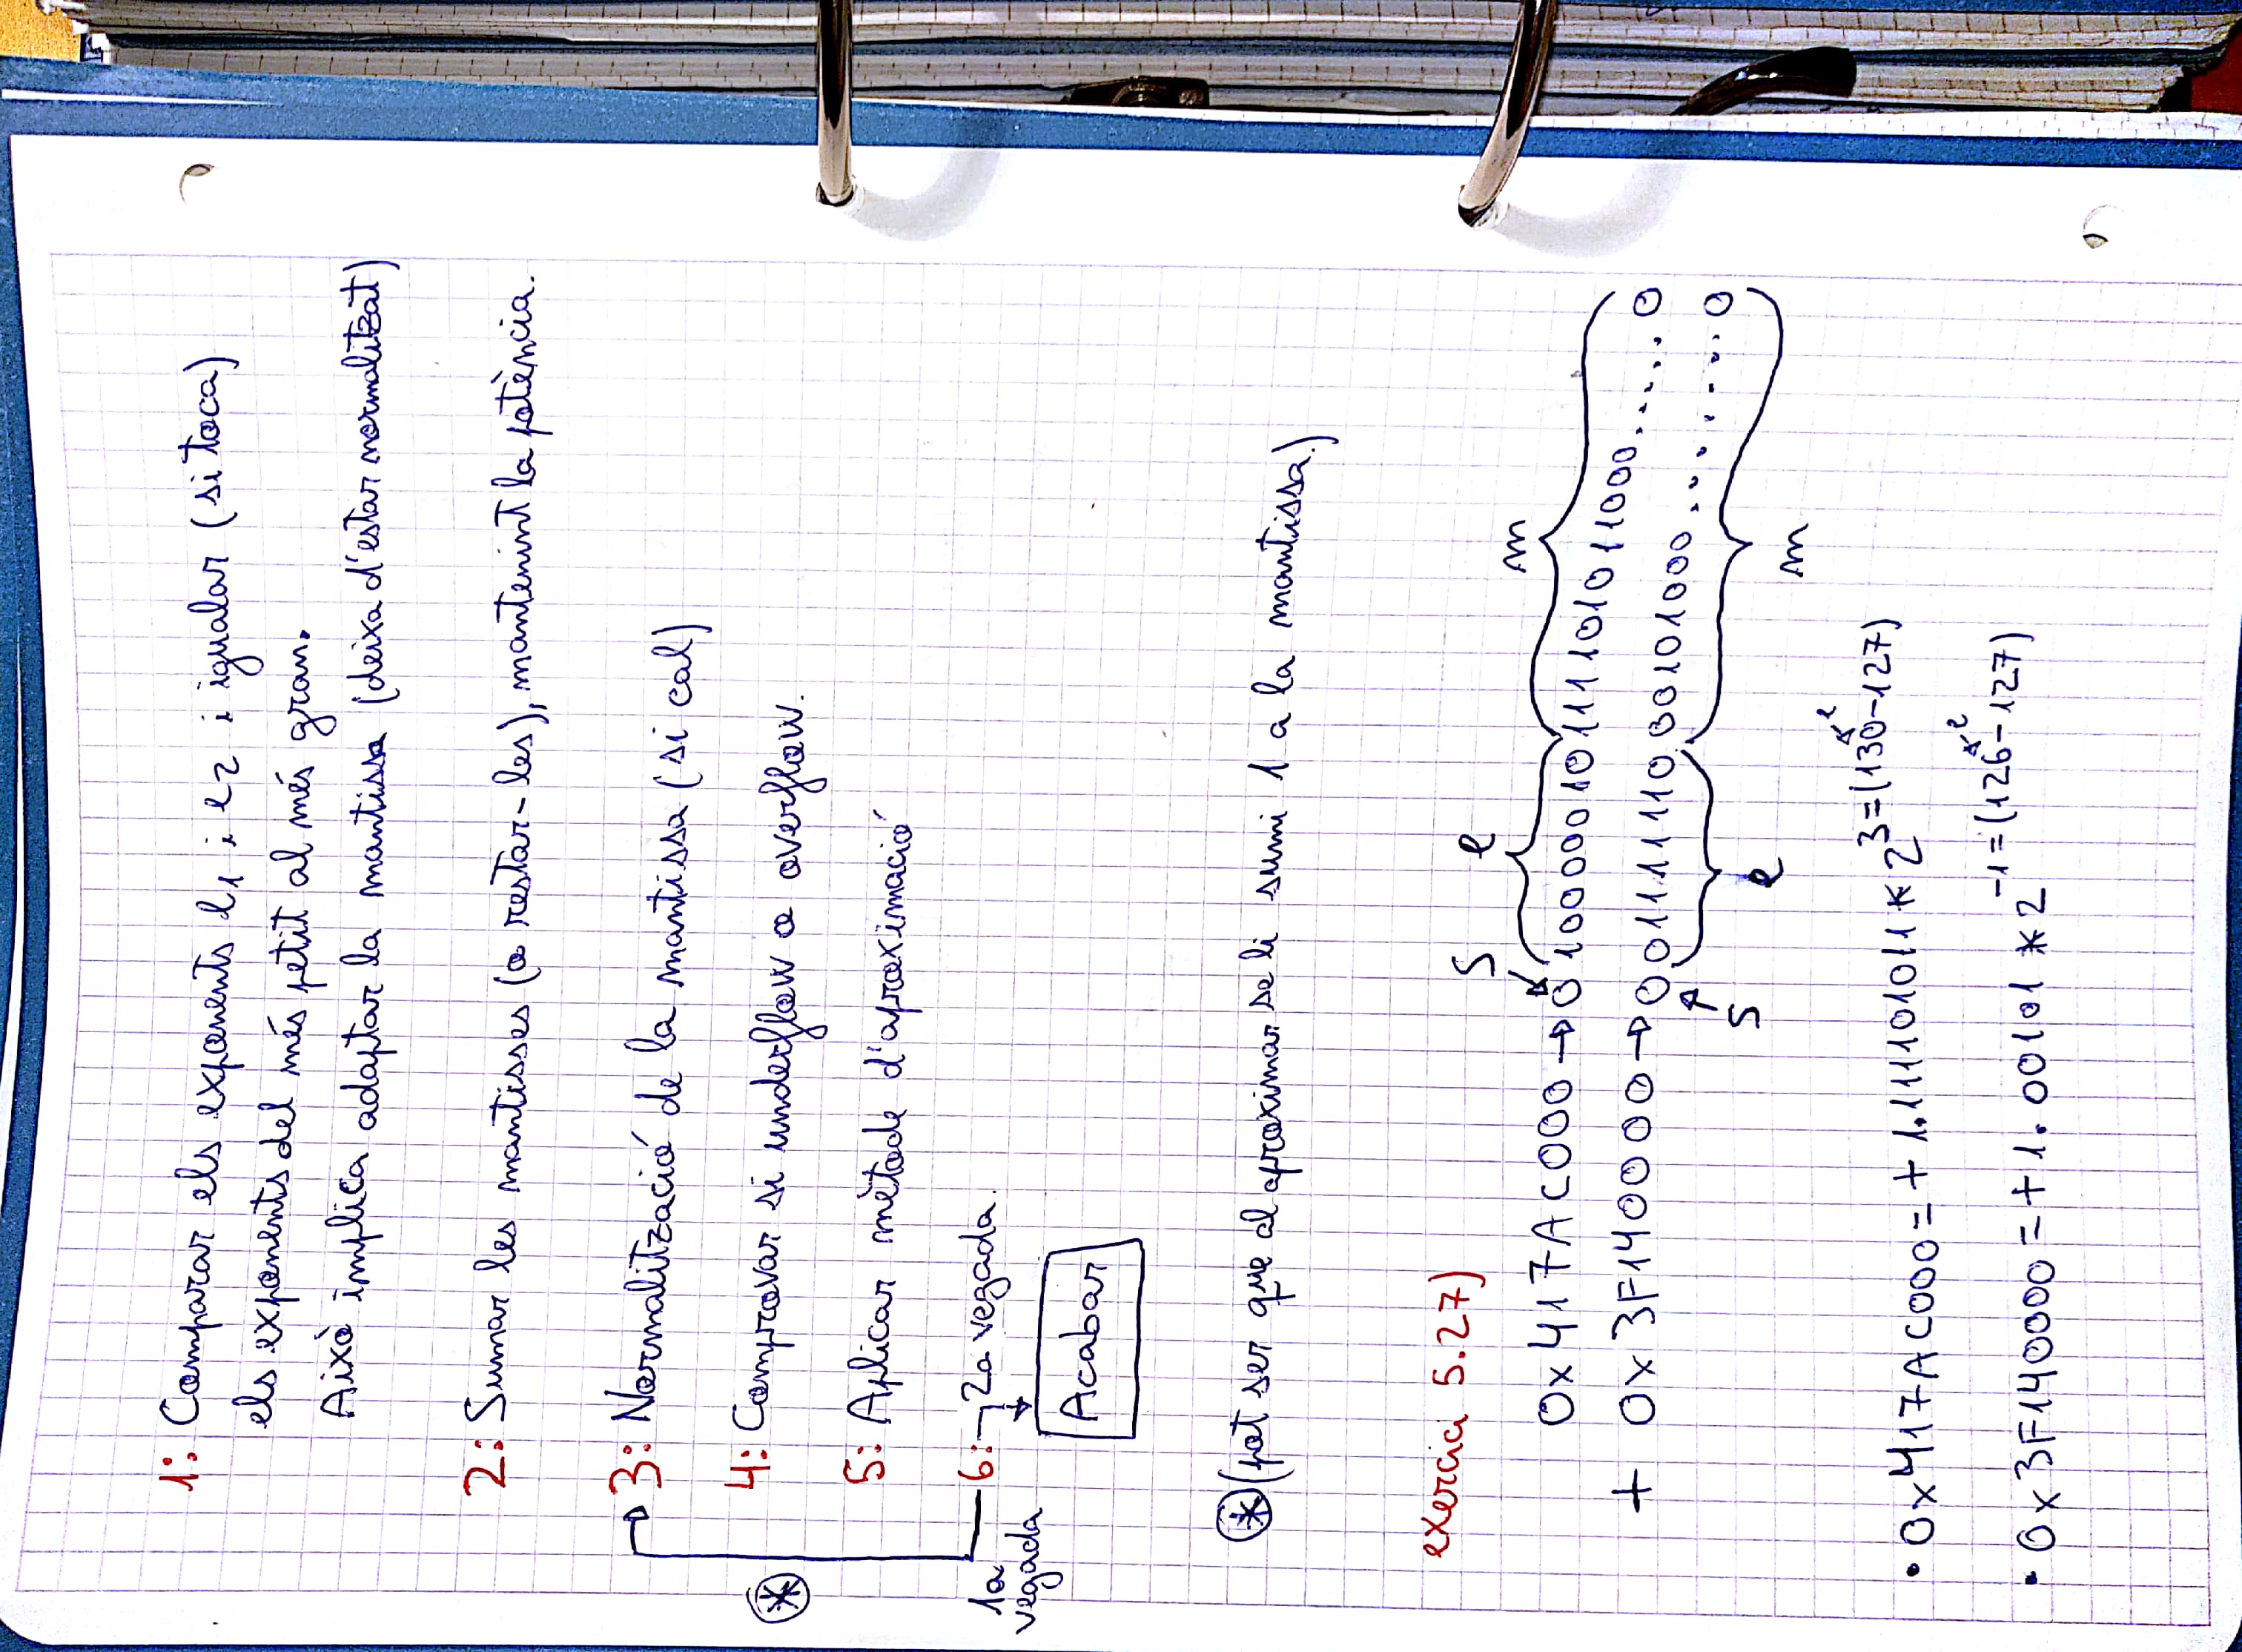 1: Comparar els exponents e1 i e2 i igualar (si toca)
els exponents del més petit al més gran.
Això implica adaptar la mantissa (deixa d'estar normalitzat)
2: Sumar les mantisses (o restar-les), mantenint la potència.
3: Normalització de la mantissa (si cal)
4: Comprovar si underflow o overflow.
5: Aplicar mètode d'aproximació
6: 2a vegada.
1a
vegada
Acabar
(pot ser que al aproximar se li sumi 1 a la mantissa.)
exercici 5.27)
S e m
0x417AC000 → 01000001011110101 1000.....0
+ 0x3F140000 → 00111111000101000.......0
S e m
• 0x417AC000 = + 1.111101011 * 2^3=(130-127) e
• 0x3F140000 = + 1.00101 * 2^-1=(126-127) e